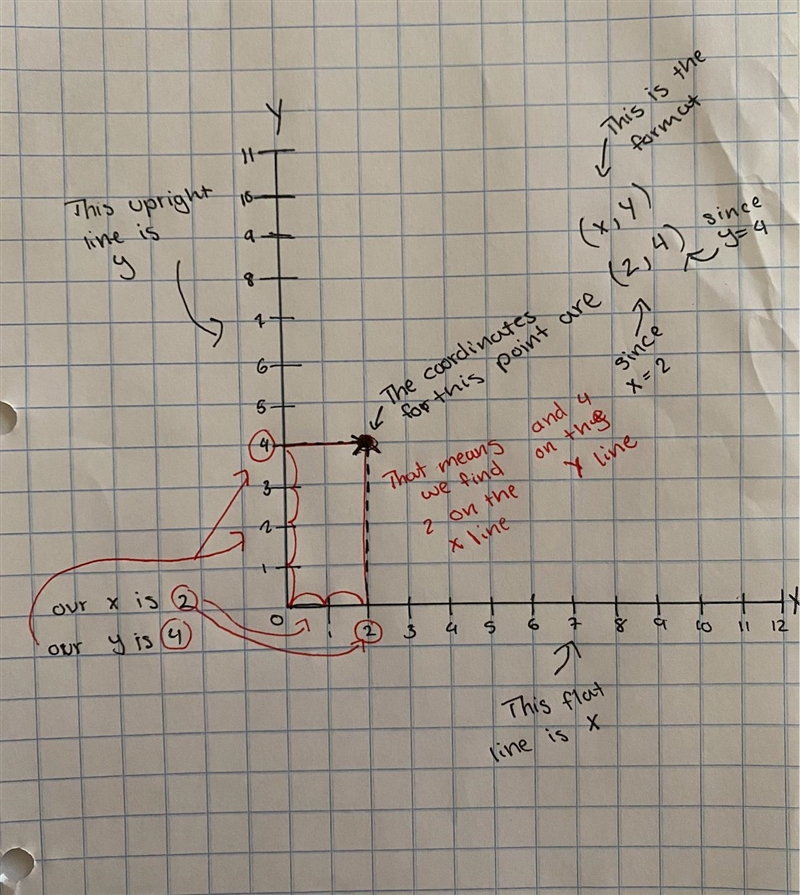 Y
11
10
9
8
7
6
5
4
3
2
1
0
1
2
3
4
5
6
7
8
9
10
11
12
X
This upright
line is
y
This is the
format
(x,y)
(2,4)
since
y=4
since
x=2
The coordinates
for this point are
That means
we find
2 on the
x line
and 4
on the
Y line
our x is 2
our y is 4
This flat
line is x